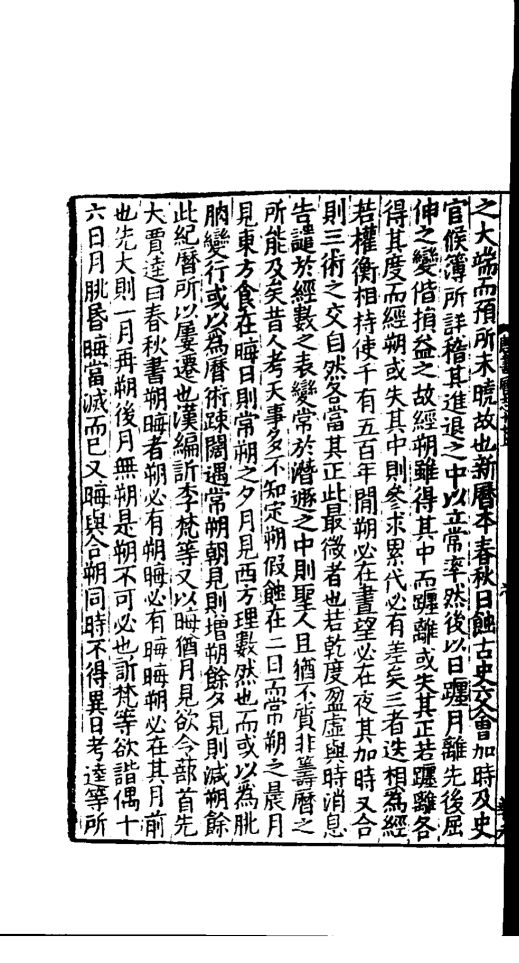 之大端而預所未曉故也新曆本春秋日蝕古史交會加時及史
官候簿所詳稽其進退之中以立常率然後以日躔月離先後屈
伸之變偕損益之故經朔雖得其中而躔離或失其正若躔離各
得其度而經朔或失其中則參求累代必有差矣三者迭相爲經
若權衡相持使千有五百年間朔必在晝望必在夜其加時又合
則三術之交自然各當其正此最微者也若乾度盈虛與時消息
告譴於經數之表變常於潛遯之中則聖人且猶不質非籌曆之
所能及矣昔人考天事多不知定朔假蝕在二日而常朔之晨月
見東方食在晦日則常朔之夕月見西方理數然也而或以爲朓
朒變行或以爲曆術疎闊遇常朔朝見則增朔餘夕見則減朔餘
此紀曆所以屢遷也漢編訢李梵等又以晦猶月見欲令蔀首先
大賈逵曰春秋書朔晦者朔必有朔晦必有晦晦朔必在其月前
也先大則一月再朔後月無朔是朔不可必也訢梵等欲諧偶十
六日月朓昏晦當滅而已又晦與合朔同時不得異日考逵等所